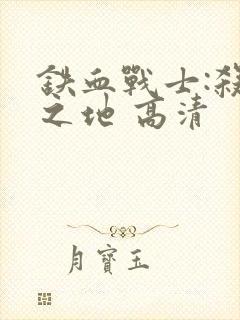 鉄血戰士:殺
之地 高清
月寶玉